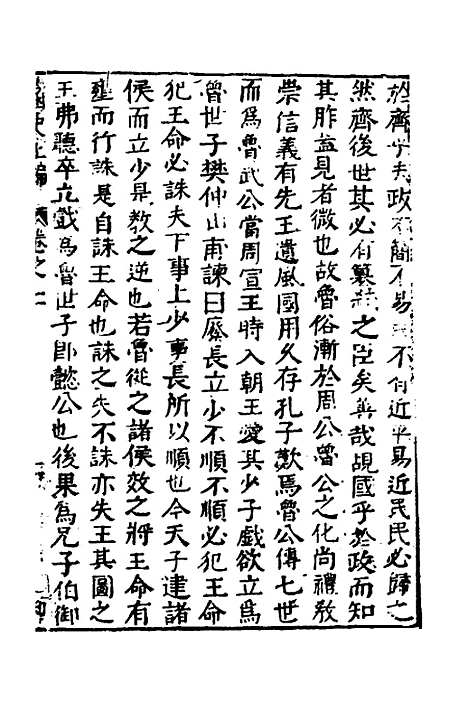 於齊乎夫政不簡不易不有近平易近民民必歸之
然齊後世其必有簒弒之臣矣善哉覘國乎於政而知
其胙益見者微也故魯俗漸於周公魯公之化尚禮敎
崇信義有先王遺風國用久存孔子歎焉魯公傳七世
而爲魯武公當周宣王時入朝王愛其少子戲欲立爲
魯世子樊仲山甫諫曰廢長立少不順不順必犯王命
犯王命必誅夫下事上少事長所以順也今天子建諸
侯而立少是教之逆也若魯從之諸侯效之將王命有
壅而行誅是自誅王命也誅之失不誅亦失王其圖之
王弗聽卒立戲爲魯世子卽懿公也後果為兄子伯御
卷之一